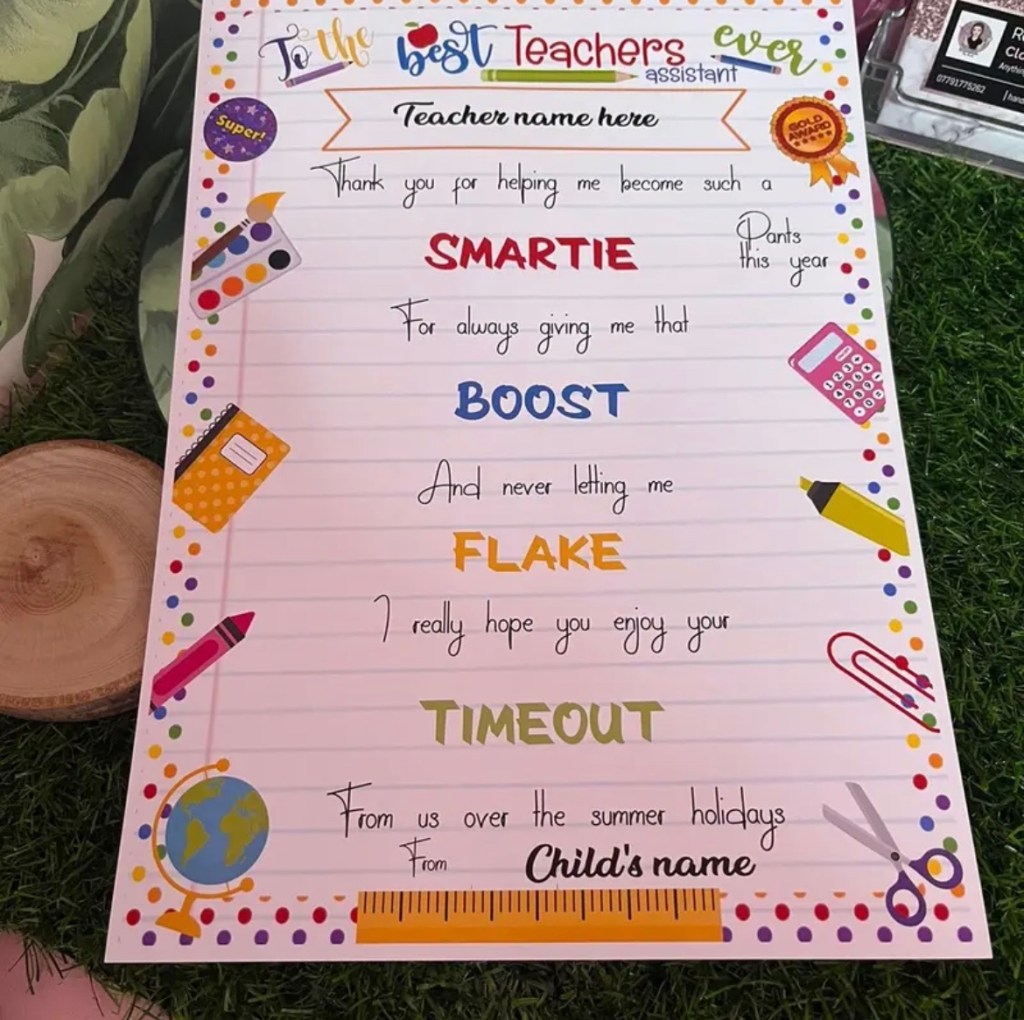 To the best Teachers ever
assistant
Teacher name here
Super!
GOLD
AWARD
Thank you for helping me become such a
SMARTIE
Pants
this year
For always giving me that
BOOST
And never letting me
FLAKE
I really hope you enjoy your
TIMEOUT
From us over the summer holidays
From Child's name
07791775262